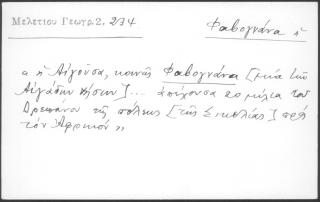 Μελετίου Γεωγρ. 2, 234
Φαβογνάνα ἡ
« ἡ Αἰγοῦσα, κοινῶς Φαβογνάνα [μία τῶν
Αἰγάδων νήσων]... ἀπέχουσα 20 μίλια τοῦ
Δρεπάνου τῆς πόλεως [τῆς Σικελίας] πρὸς
τὸν Ἀφρικόν »